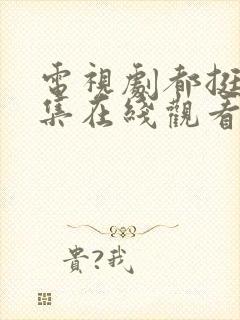 電視劇都挺
集在綫觀看
貴?我